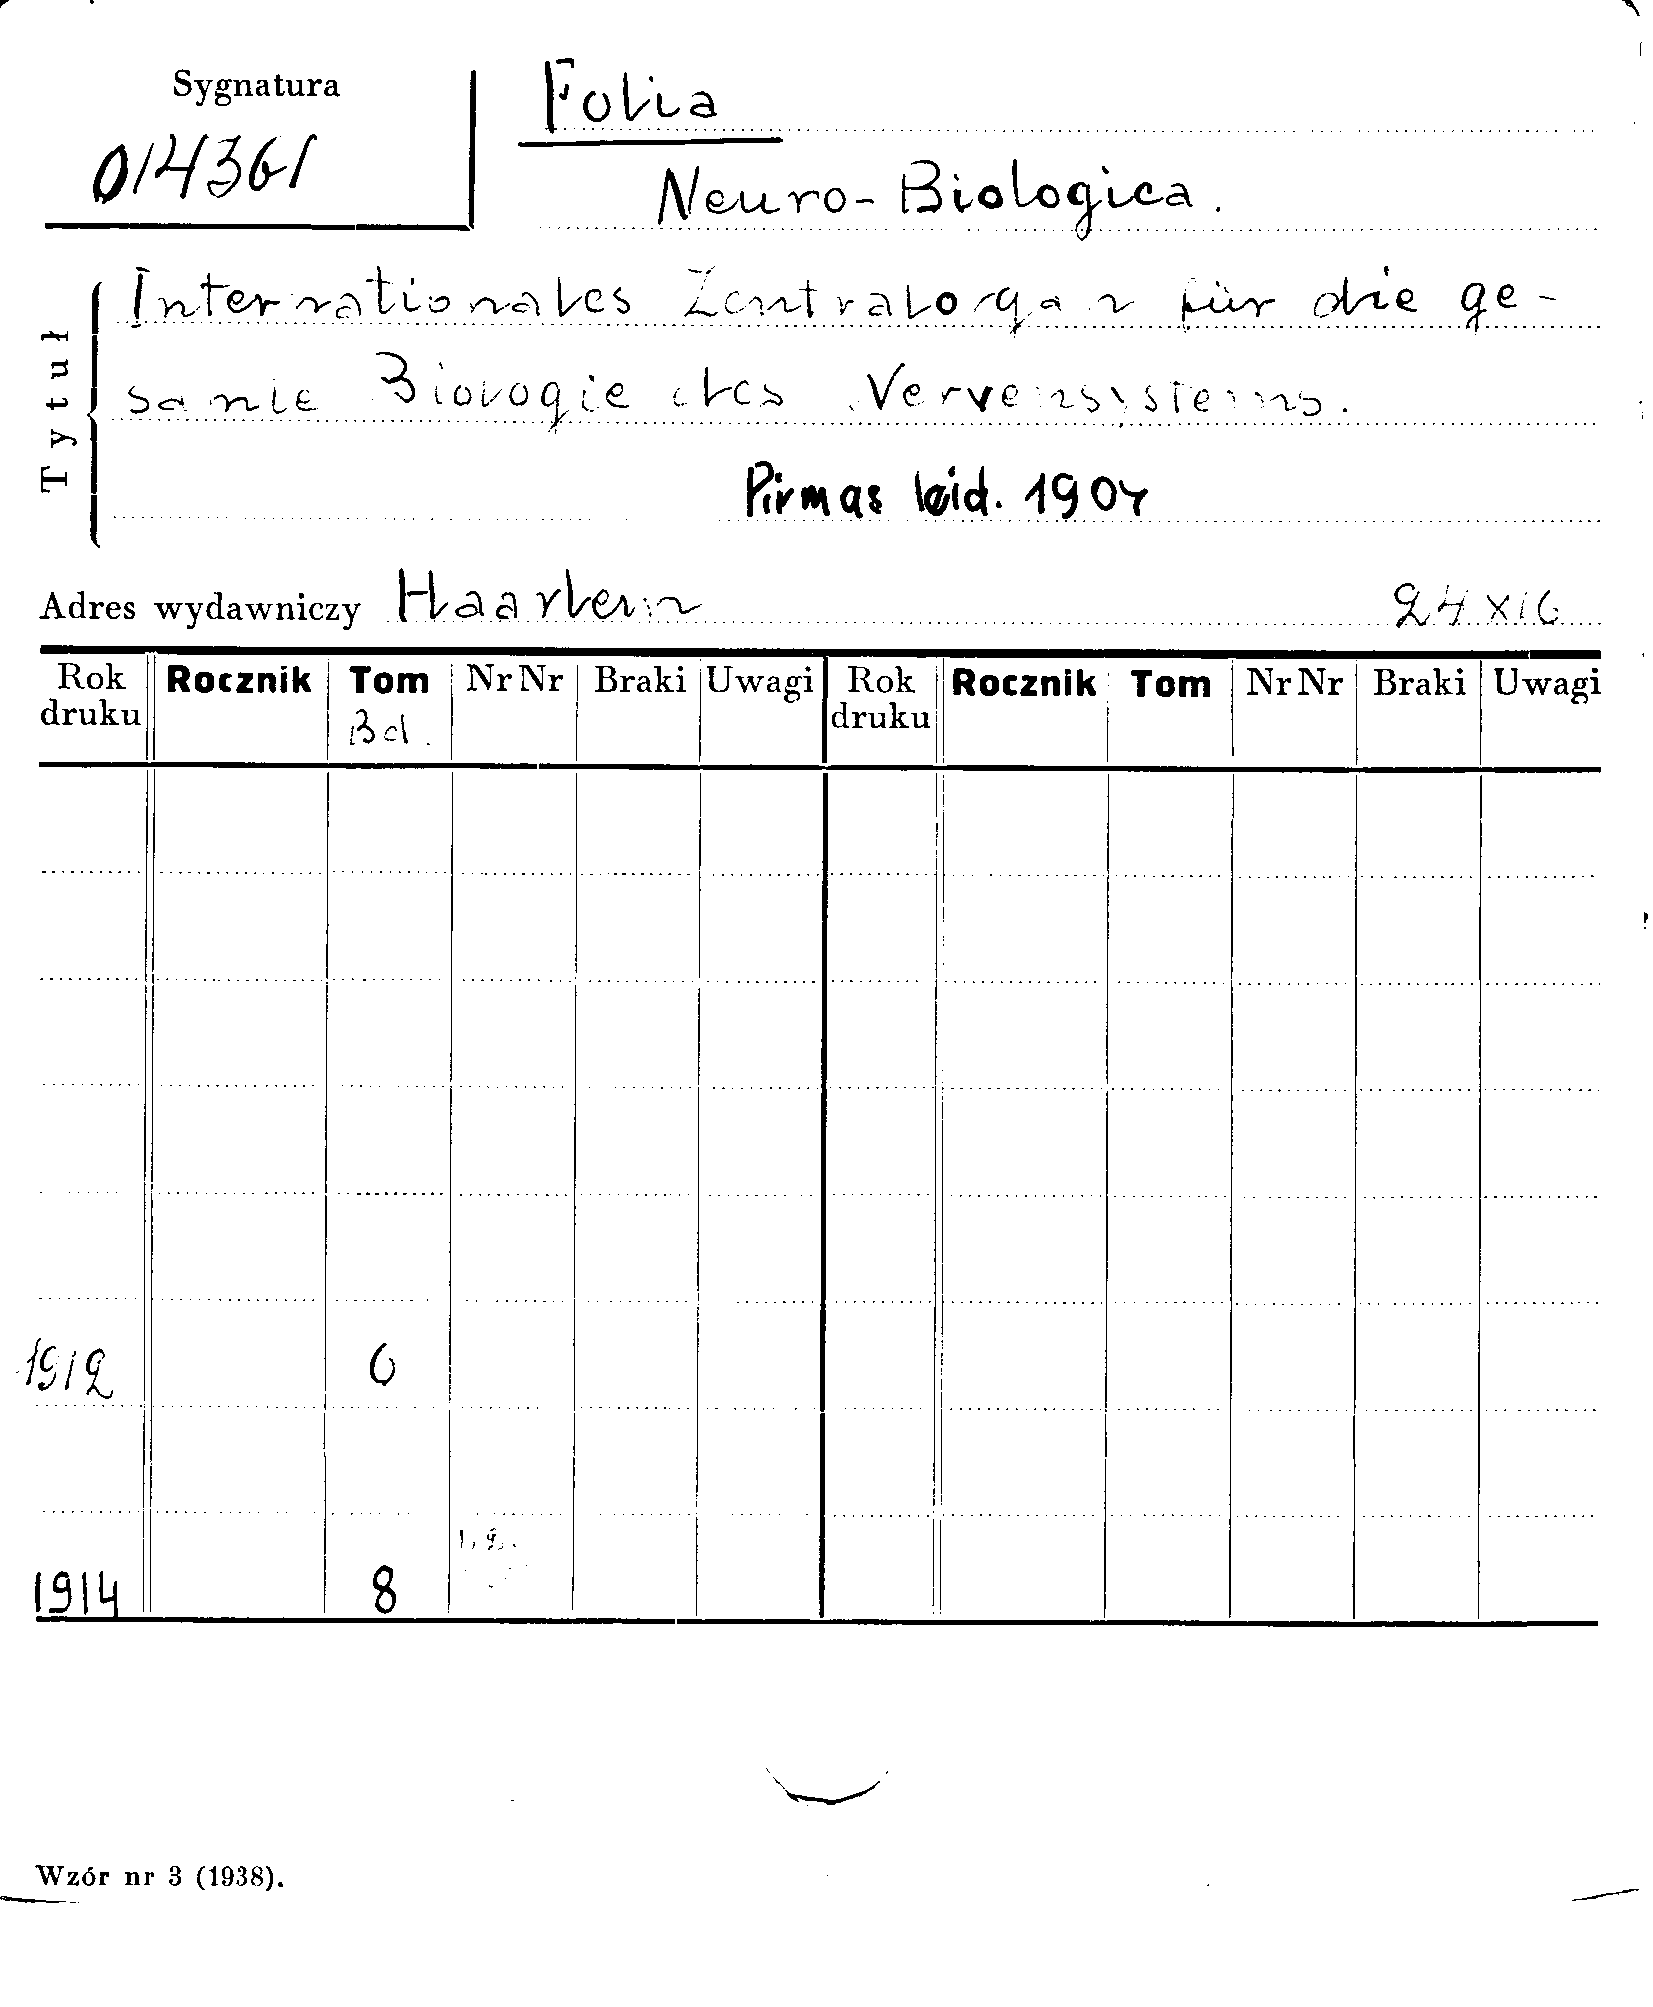 Sygnatura
014361
Folia
Neuro-Biologica.
Tytuł
Internationales Zentralorgan für die ge-
samte Biologie des Nervensystems.
Pirmas leid. 1907
Adres wydawniczy Haarlem 24x16
Rok druku Rocznik Tom Nr Nr Braki Uwagi Rok druku Rocznik Tom Nr Nr Braki Uwagi
Bd.
1912 6
1, 2.
1914 8
Wzór nr 3 (1938).